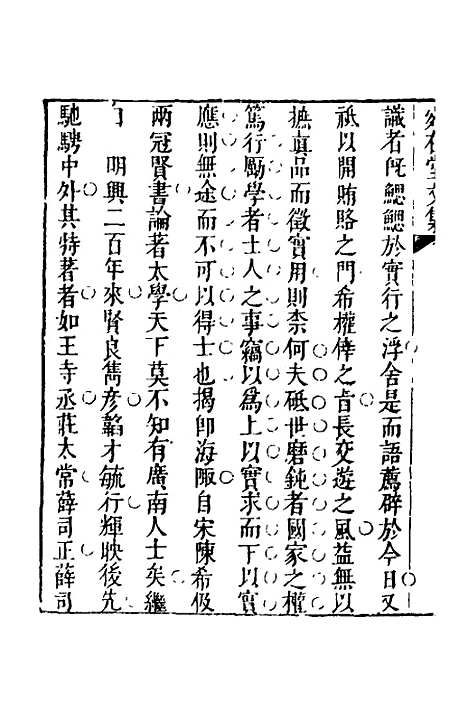 識者旣鰓鰓於實行之浮舍是而語薦辟於今日又
祇以開賄賂之門希權倖之旨長交遊之風益無以
摭眞品而徵實用則柰何夫砥世磨鈍者國家之權
篤行勵學者士人之事竊以爲上以實求而下以實
應則無途而不可以得士也揭卽海陬自宋陳希伋
兩冠賢書論著太學天下莫不知有廣南人士矣繼
明興二百年來賢良雋彥韜才毓行輝映後先
馳騁中外其特著者如王寺丞莊太常薛司正薛司